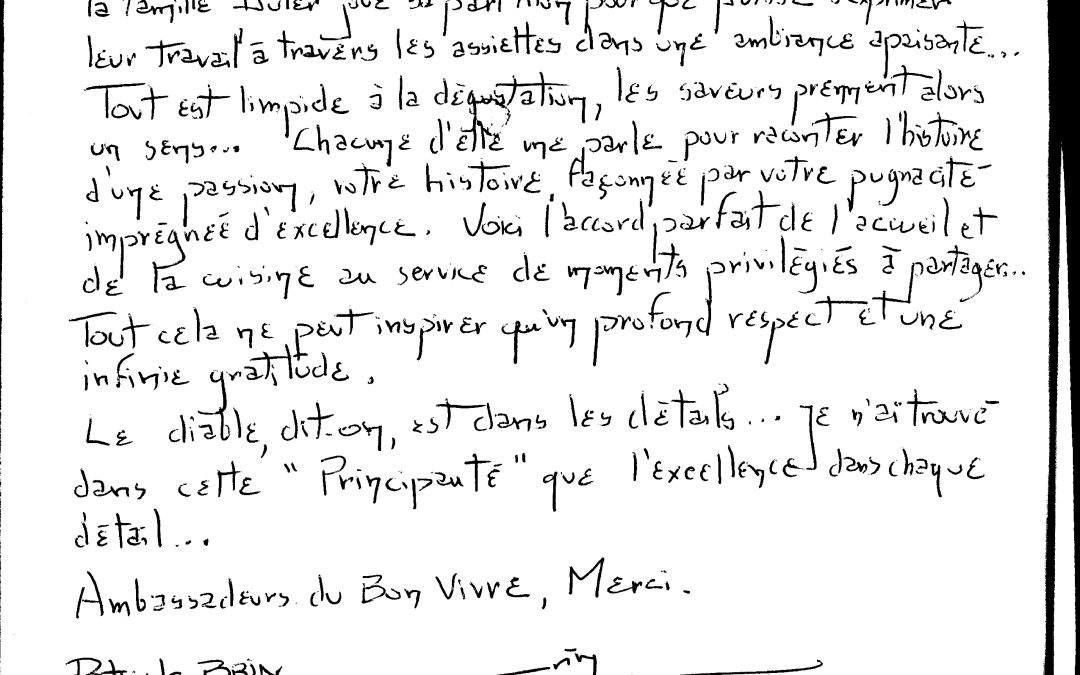 la famille joue sa partition pour que puisse s'exprimer
leur travail à travers les assiettes dans une ambiance apaisante...
Tout est limpide à la dégustation, les saveurs prennent alors
un sens... Chacune d'elle me parle pour raconter l'histoire
d'une passion, votre histoire, façonnée par votre pugnacité
imprégnée d'excellence. Voici l'accord parfait de l'accueil et
de la cuisine au service de moments privilégiés à partager...
Tout cela ne peut inspirer qu'un profond respect et une
infinie gratitude.
Le diable, dit-on, est dans les détails... Je n'ai trouvé
dans cette "Principauté" que l'excellence dans chaque
détail...
Ambassadeurs du Bon Vivre, Merci.